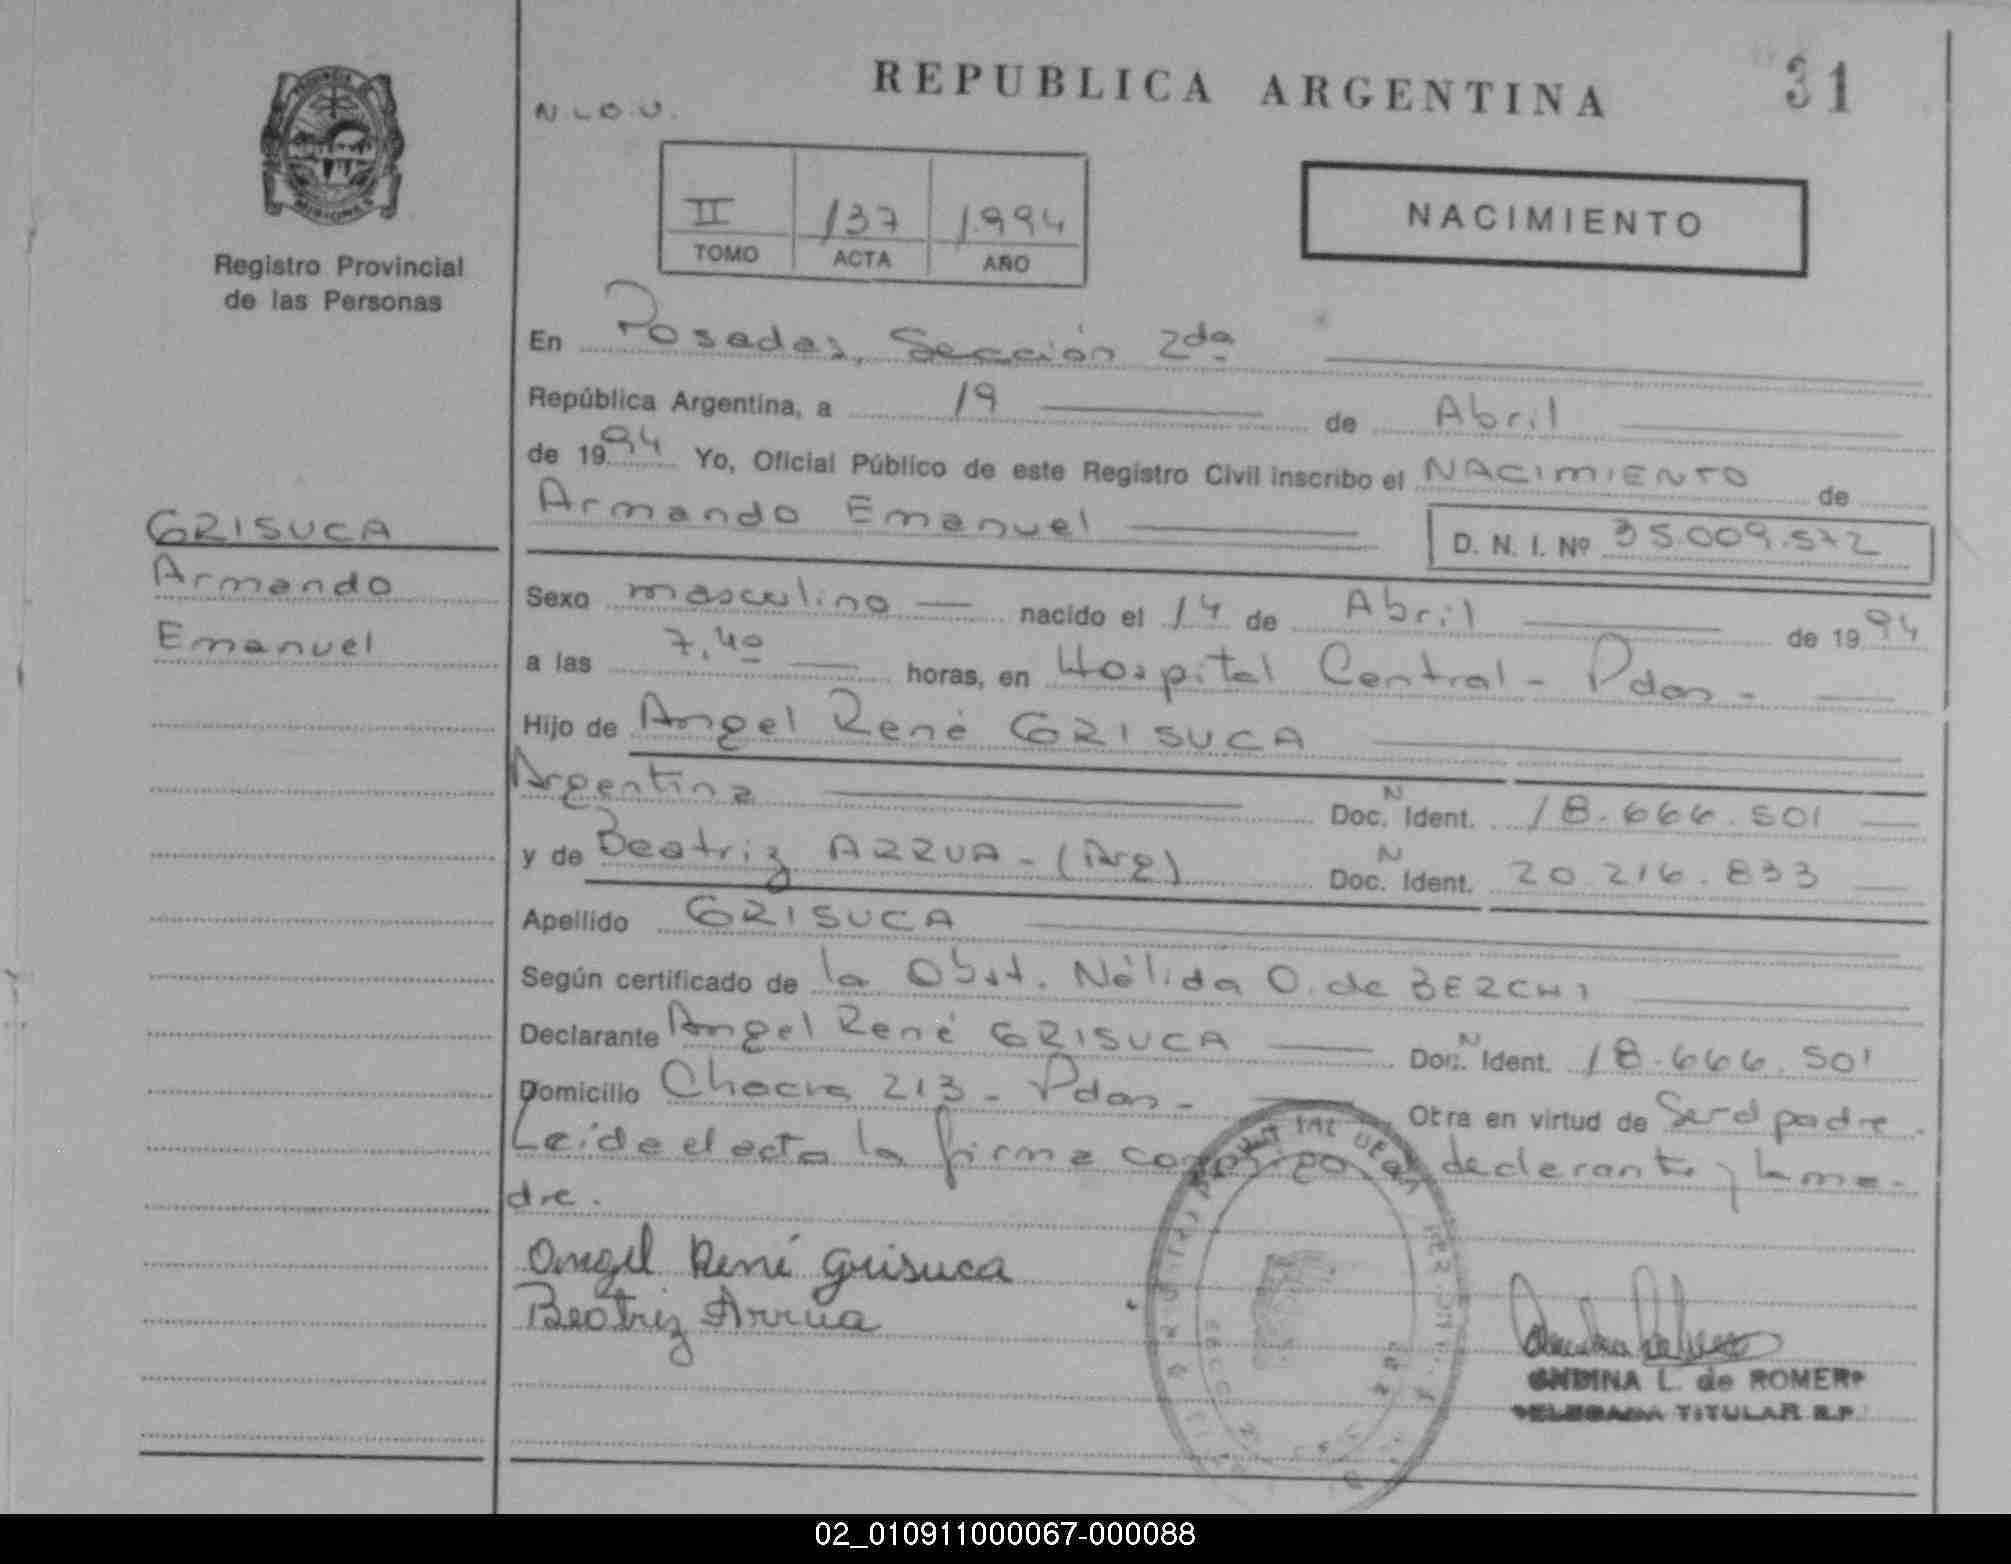 REPUBLICA ARGENTINA
31
N.L.O.U.
PROVINCIA
MISIONES
Registro Provincial
de las Personas
II 137 1.994
TOMO ACTA AÑO
NACIMIENTO
En Posadas, Sección 2da
República Argentina, a 19 de Abril
de 1994 Yo, Oficial Público de este Registro Civil inscribo el NACIMIENTO de
Armando Emanuel
D. N. I. Nº 35.009.572
GRISUCA
Armando
Emanuel
Sexo masculino nacido el 14 de Abril de 1994
a las 7,40 horas, en Hospital Central - Pdas -
Hijo de Angel René GRISUCA
Argentina N Doc. Ident. 18.666.501
y de Beatriz ARRUA - (Arg) N Doc. Ident. 20.216.833
Apellido GRISUCA
Según certificado de la Obst. Nélida O. de BERCHI
Declarante Angel René GRISUCA N Doc. Ident. 18.666.501
Domicilio Chacra 213 - Pdas - Otra en virtud de Ser el padre.
Leída el acta la firma conmigo declarante y la ma-
dre.
Angel René Grisuca
Beatriz Arrua
ANDINA L. de ROMERO
DELEGADA TITULAR R.P.
02_010911000067-000088